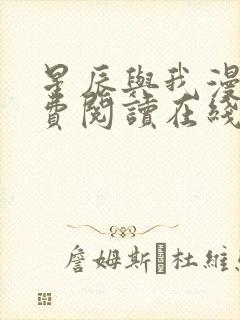 星辰與我漫
費閱讀在綫
詹姆斯·杜維